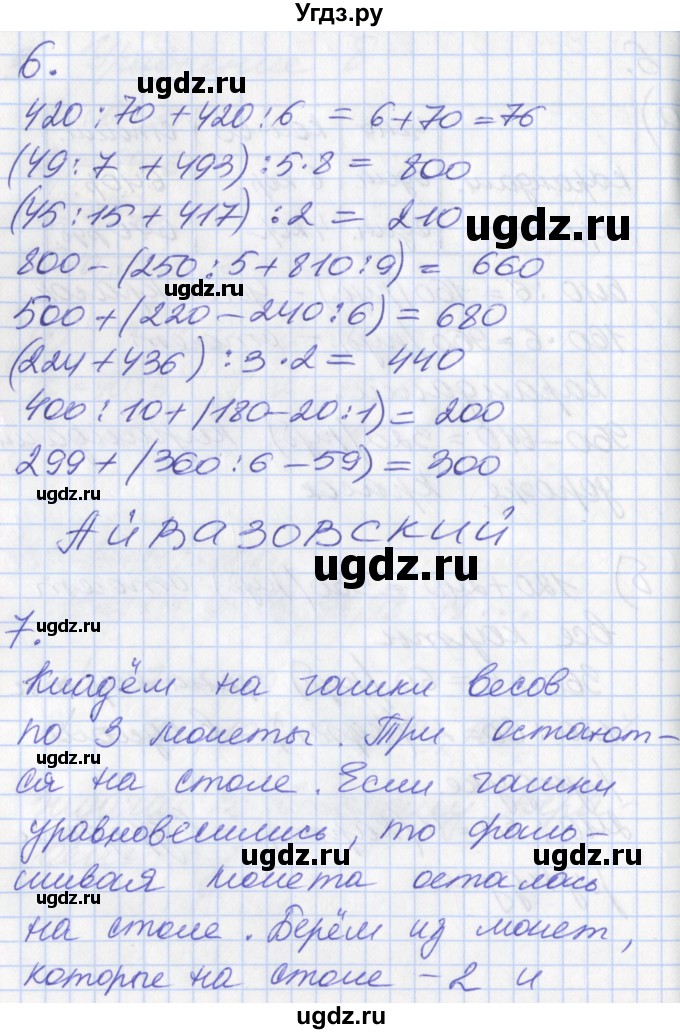 Угдз.ру
6.
420:70+420:6 = 6+70=76
(49:7 +493):5·8= 800
(45:15+417):2 = 210
800-(250:5+810:9)= 660
500+(220-240:6)= 680
(224+436):3·2= 440
400:10+(180-20:1)= 200
299+(360:6-59)=300
АЙВАЗОВСКИЙ
7.
Кладём на чашки весов
по 3 монеты. Три остают-
ся на столе. Если чашки
уравновесились, то фаль-
шивая монета осталась
на столе. Берём из монет,
которые на столе - 2 и
ugdz.ru
ugdz.ru
ugdz.ru
ugdz.ru
ugdz.ru
ugdz.ru
ugdz.ru
ugdz.ru
ugdz.ru
ugdz.ru
ugdz.ru